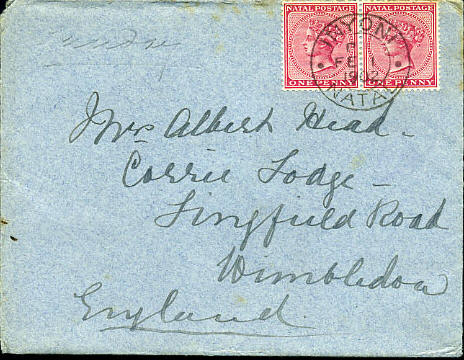 NATAL POSTAGE NATAL POSTAGE
INYONI
FE 1
NATAL
ONE PENNY ONE PENNY
Mrs Albert Head -
Corrie Lodge -
Lingfield Road
Wimbledon
England